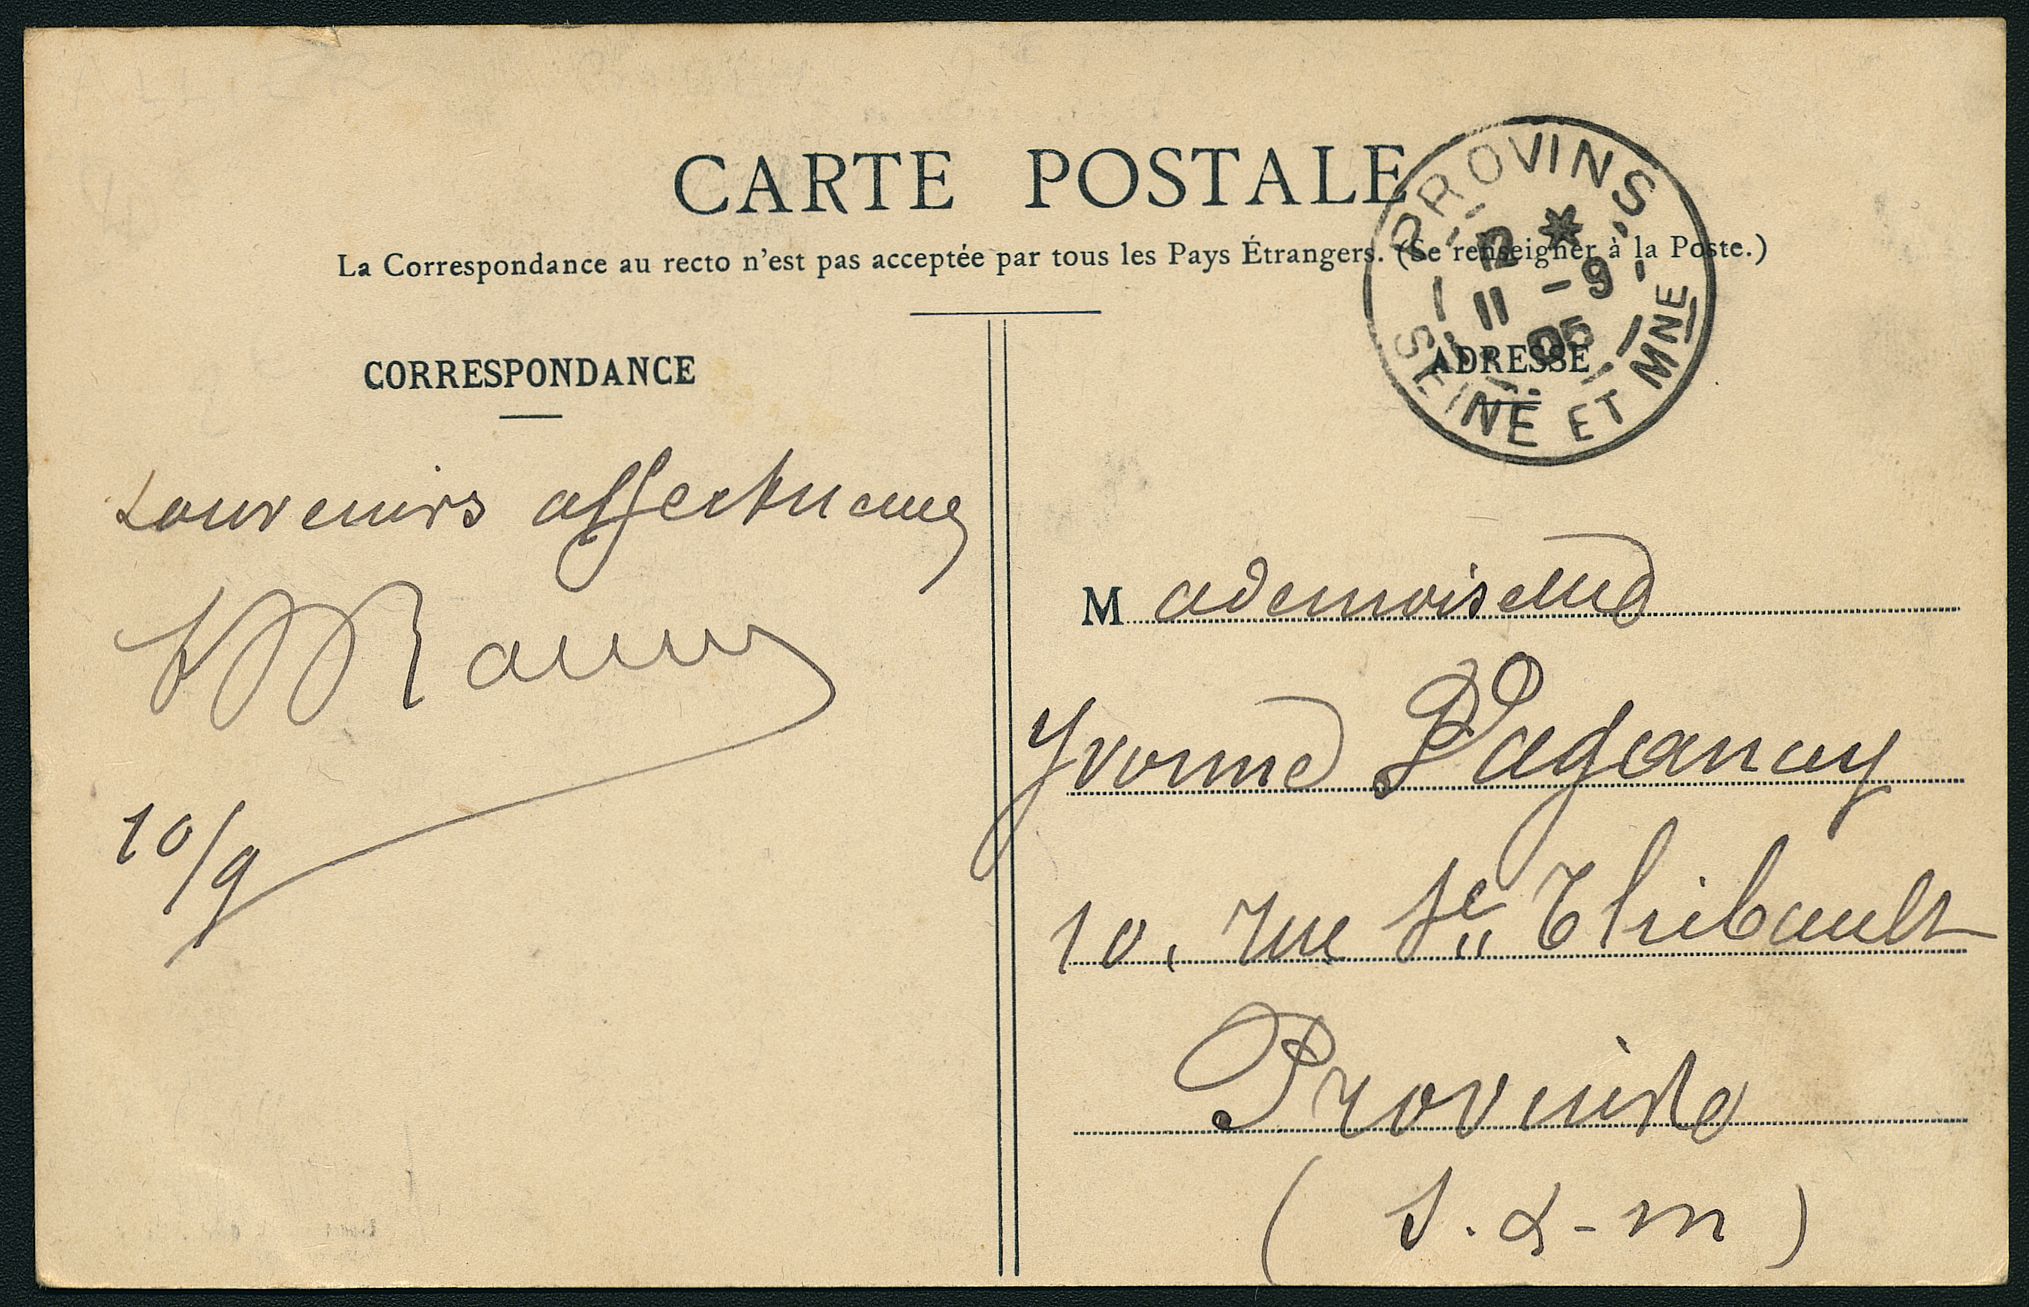 CARTE POSTALE
La Correspondance au recto n'est pas acceptée par tous les Pays Étrangers. (Se renseigner à la Poste.)
PROVINS
12 *
11 - 9
05
SEINE ET MNE
CORRESPONDANCE
Souvenirs affectueux
10/9
ADRESSE
Mademoiselle
Yvonne Paganay
10, rue Ste Thibault
Provins
(S.&-M)